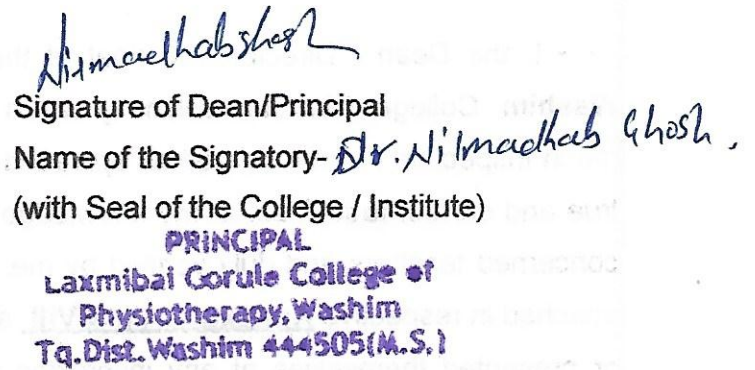 Nilmadhab Ghosh
Signature of Dean/Principal
Name of the Signatory- Dr. Nilmadhab Ghosh.
(with Seal of the College / Institute)
PRINCIPAL
Laxmibai Gorule College of
Physiotherapy,Washim
Tq.Dist.Washim 444505(M.S.)